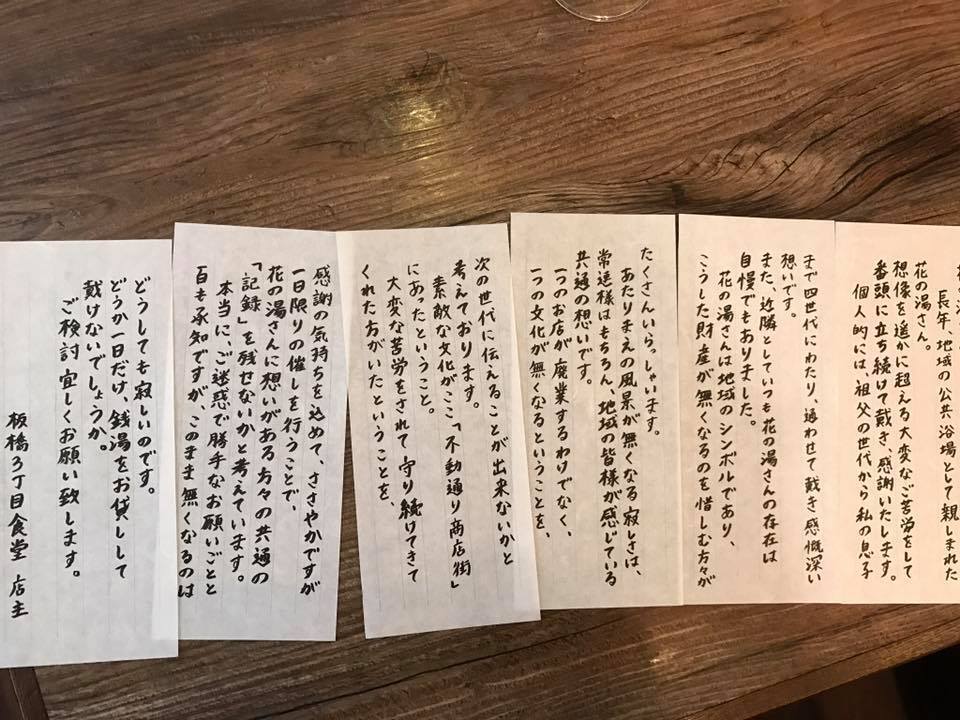 長年、地域の公共浴場として親しまれた
花の湯さん。
想像を遥かに超える大変なご苦労をして
番頭に立ち続けて戴き、感謝いたします。
個人的には、祖父の世代から私の息子
まで四世代にわたり、通わせて戴き感慨深い
想いです。
また、近隣としていつも花の湯さんの存在は
自慢でもありました。
花の湯さんは地域のシンボルであり、
こうした財産が無くなるのを惜しむ方々が
たくさんいらっしゃいます。
あたりまえの風景が無くなる寂しさは、
常連様はもちろん、地域の皆様が感じている
共通の想いです。
一つのお店が廃業するわけでなく、
一つの文化が無くなるということを、
次の世代に伝えることが出来ないかと
考えております。
素敵な文化がここ「不動通り商店街」
にあったということ。
大変な苦労をされて守り続けてきて
くれた方がいたということを、
感謝の気持ちを込めて、ささやかですが
一日限りの催しを行うことで、
花の湯さんに想いがある方々の共通の
「記録」を残せないかと考えています。
本当に、ご迷惑で勝手なお願いごとと
百も承知ですが、このまま無くなるのは
どうしても寂しいのです。
どうか一日だけ、銭湯をお貸しして
戴けないでしょうか。
ご検討宜しくお願い致します。
板橋3丁目食堂 店主